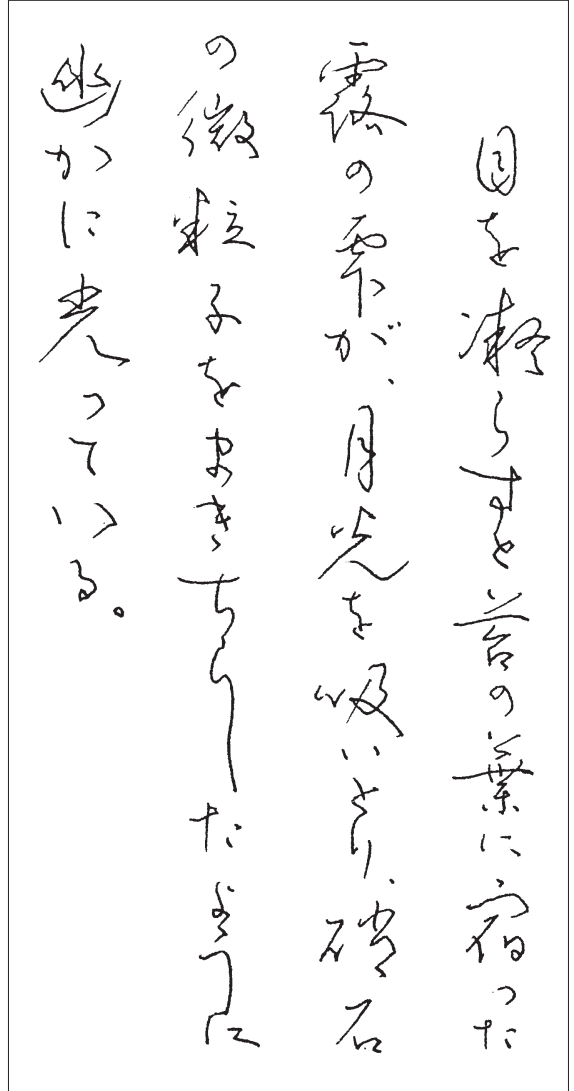 目を凝らすと苔の葉に宿った
露の雫が、月光を吸いとり、硝石
の微粒子をまきちらしたように
幽かに光っている。